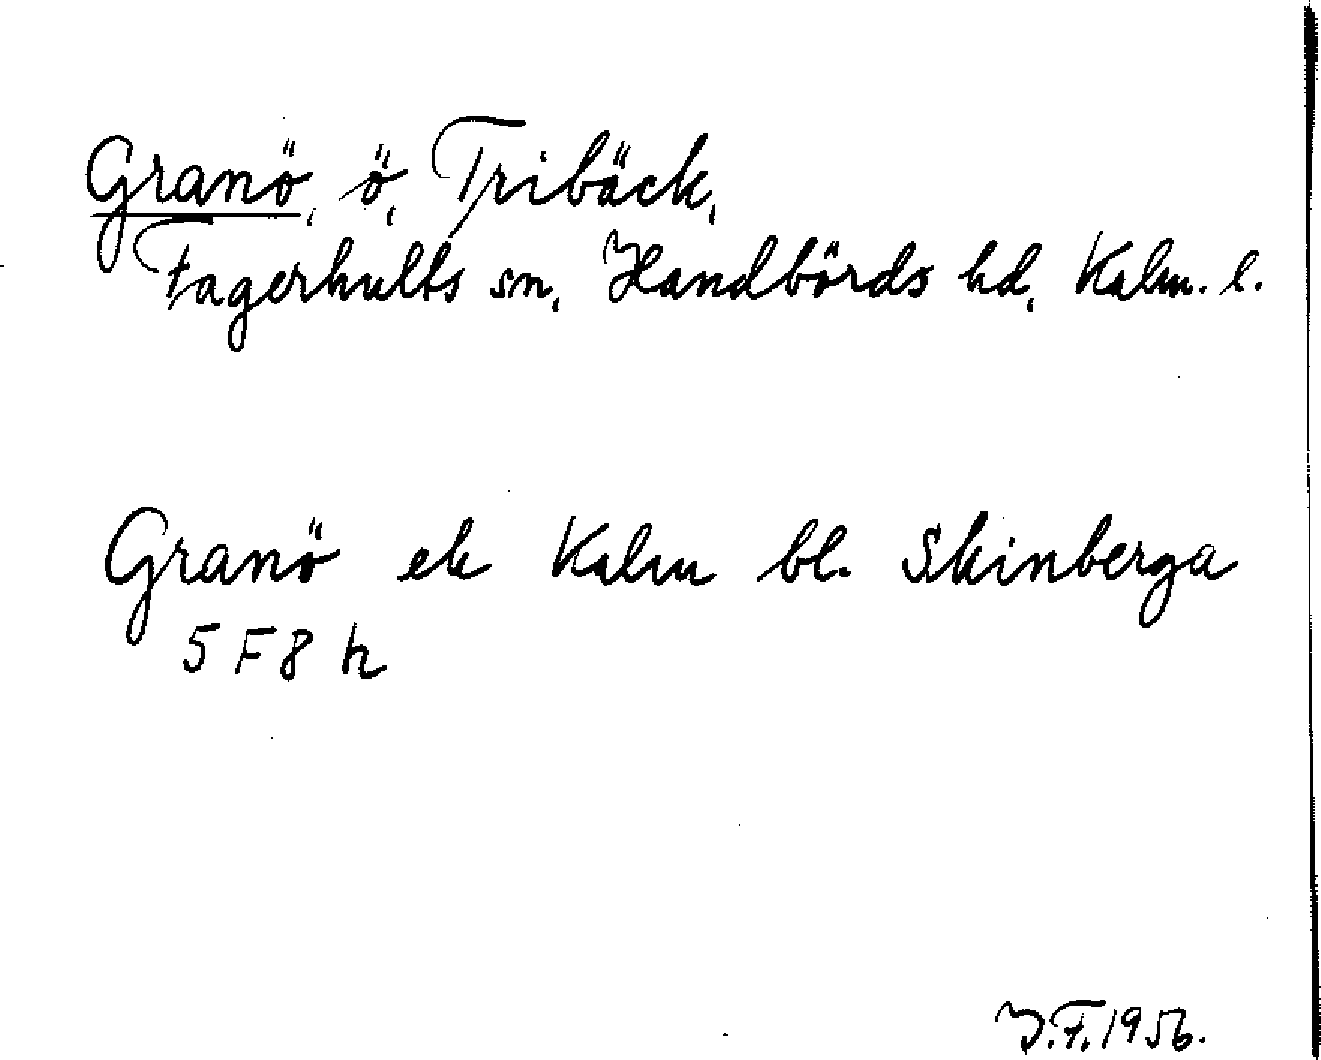 Granö, ö, Tribäck,
Fagerhults sn, Handbörds hd, Kalm. l.
Granö ek Kalm bl. Skinberga
5 F 8 h
J.F. 1956.